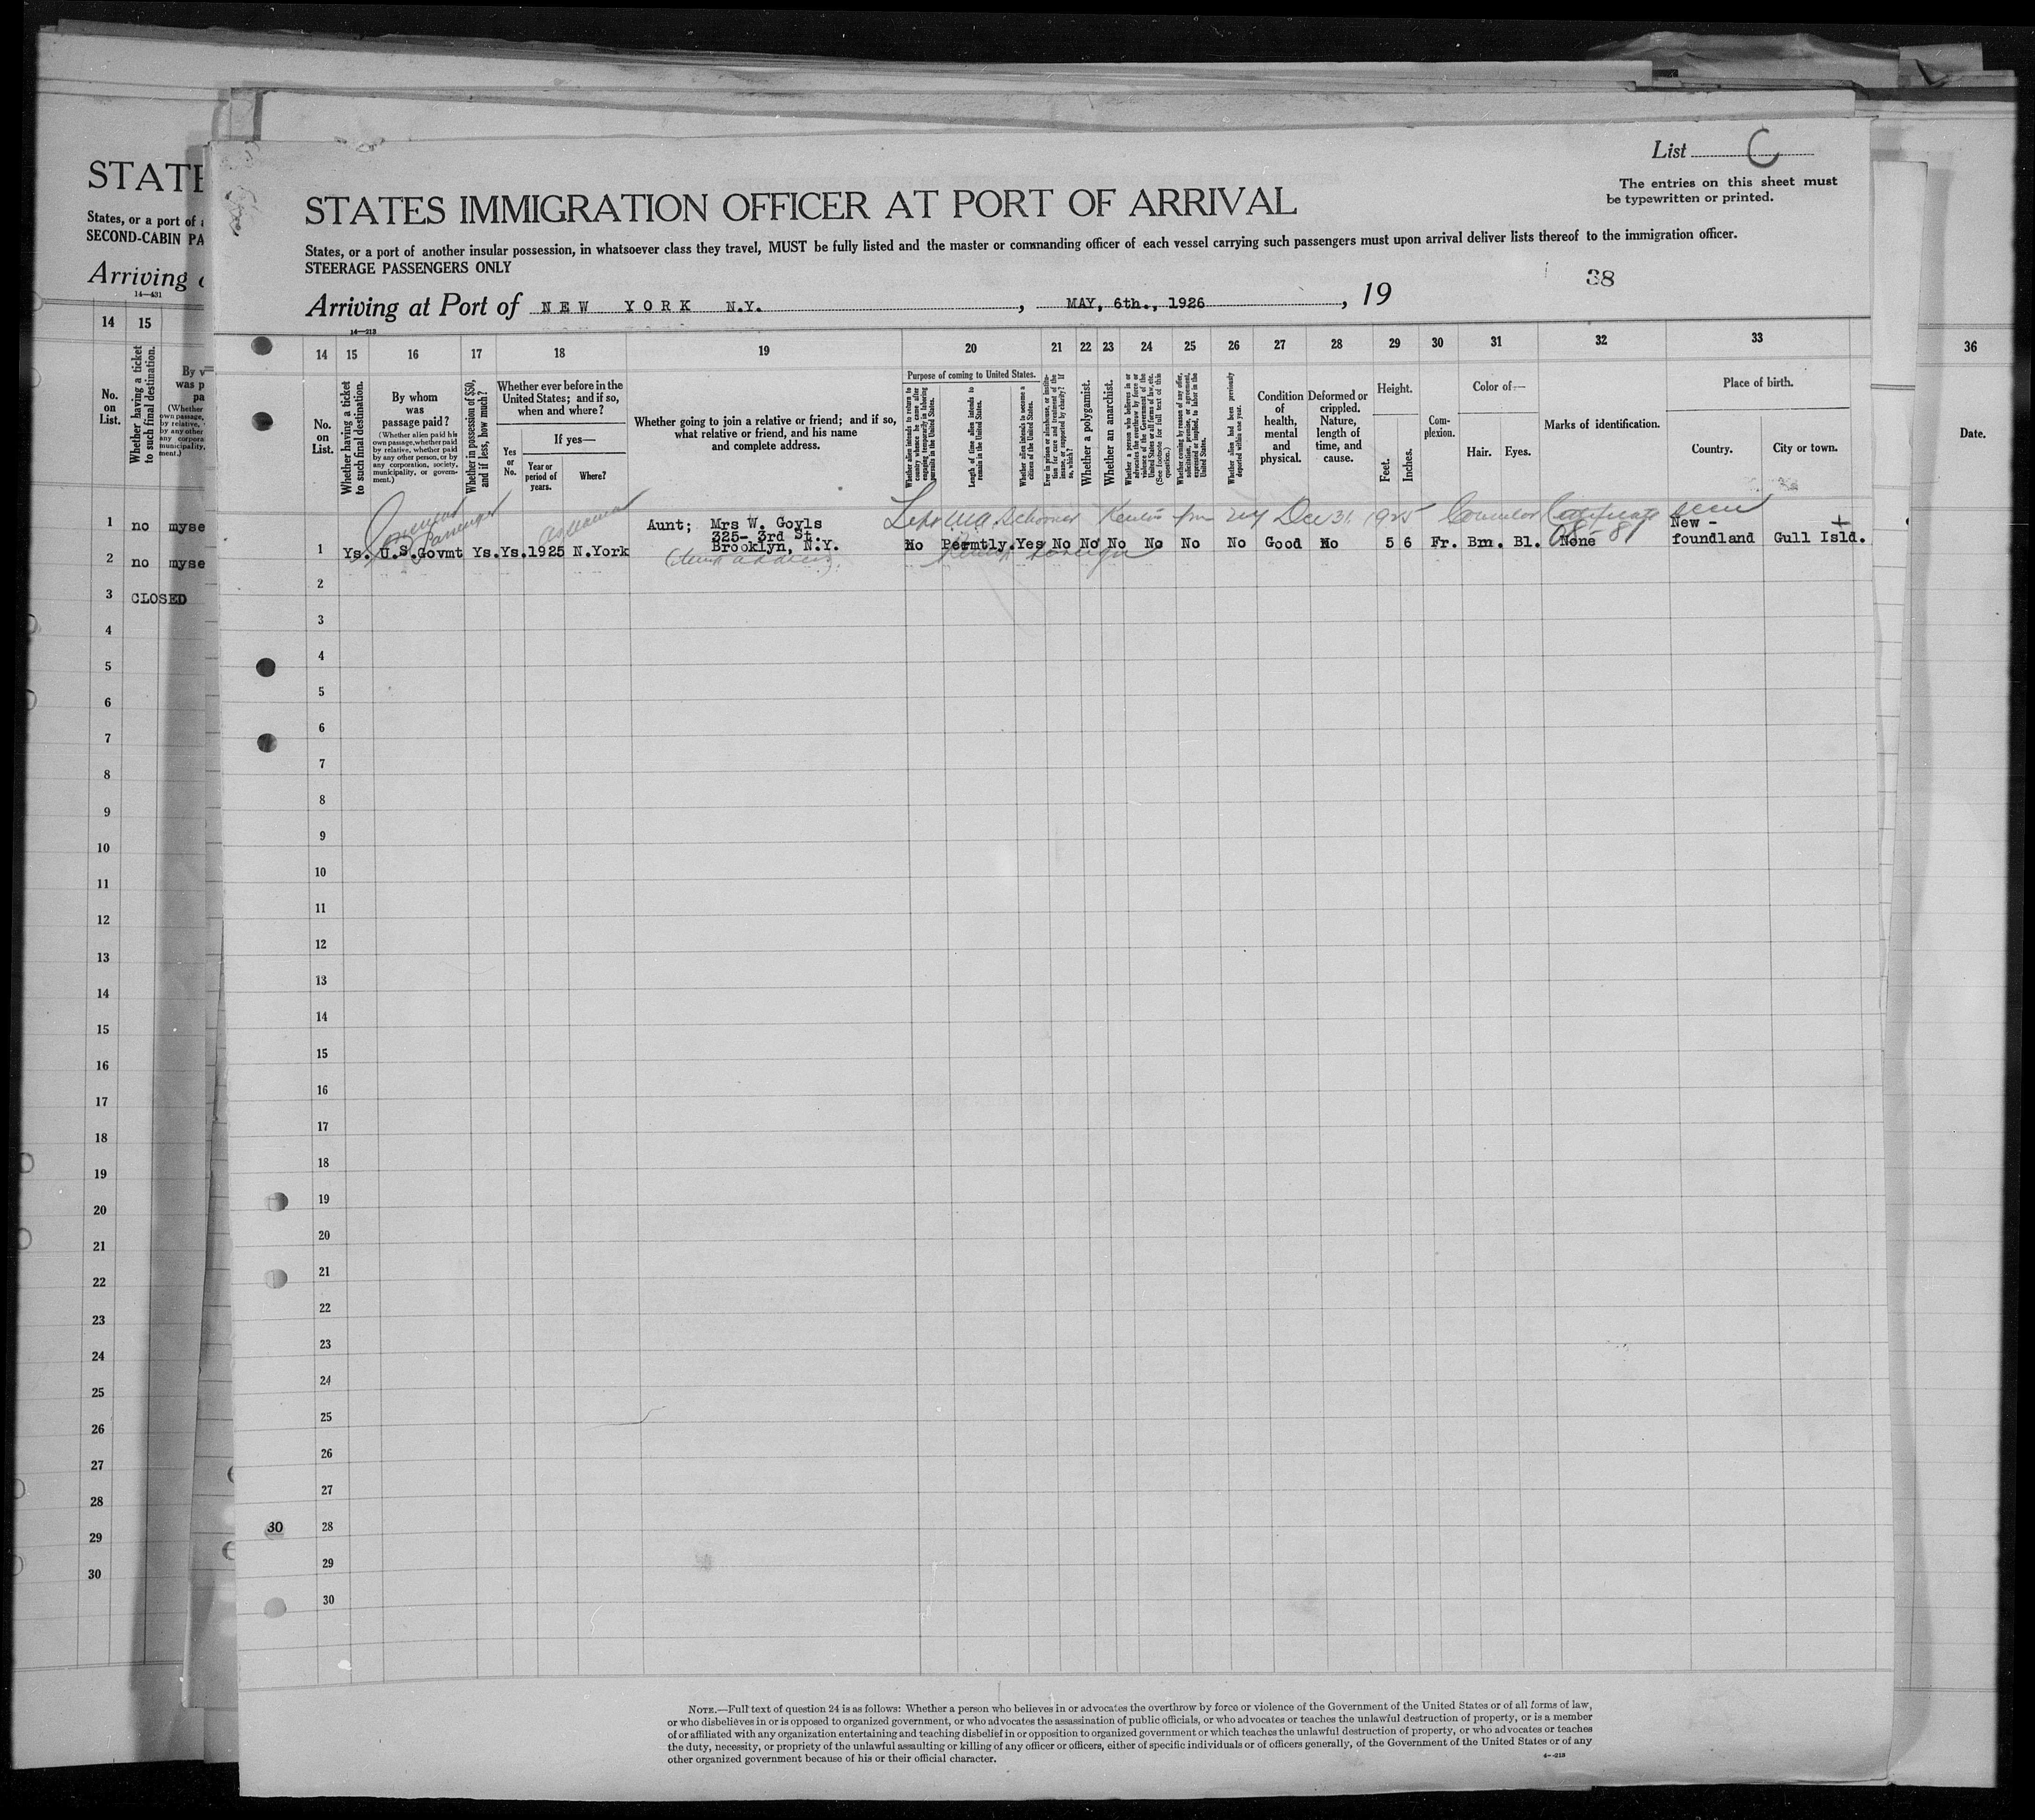 List C
The entries on this sheet must
be typewritten or printed.
STATES IMMIGRATION OFFICER AT PORT OF ARRIVAL
States, or a port of another insular possession, in whatsoever class they travel, MUST be fully listed and the master or commanding officer of each vessel carrying such passengers must upon arrival deliver lists thereof to the immigration officer.
STEERAGE PASSENGERS ONLY
38
Arriving at Port of NEW YORK N.Y. , MAY, 6th., 1926 , 19
14—213
14 15 16 17 18 19 20 21 22 23 24 25 26 27 28 29 30 31 32 33
No. on List.
Whether having a ticket to such final destination.
By whom was passage paid?
(Whether alien paid his own passage, whether paid by relative, whether paid by any other person, or by any corporation, society, municipality, or government.)
Whether in possession of $50, and if less, how much?
Whether ever before in the United States; and if so, when and where?
Yes or No.
If yes—
Year or period of years.
Where?
Whether going to join a relative or friend; and if so, what relative or friend, and his name and complete address.
Purpose of coming to United States.
Whether alien intends to return to country whence he came after engaging temporarily in laboring pursuits in the United States.
Length of time alien intends to remain in the United States.
Whether alien intends to become a citizen of the United States.
Ever in prison or almshouse, or institution for care and treatment of the insane, or supported by charity? If so, which?
Whether a polygamist.
Whether an anarchist.
Whether a person who believes in or advocates the overthrow by force or violence of the Government of the United States or all forms of law, etc. (See footnote for full text of this question.)
Whether coming by reason of any offer, solicitation, promise, or agreement, expressed or implied, to labor in the United States.
Whether alien had been previously deported within one year.
Condition of health, mental and physical.
Deformed or crippled. Nature, length of time, and cause.
Height.
Feet.
Inches.
Complexion.
Color of—
Hair. Eyes.
Marks of identification.
Place of birth.
Country. City or town.
Schooner from NY Dec 31 1925 Certificate seen
Aunt; Mrs W. Goyls
325- 3rd St.
Brooklyn, N.Y.
1 Ys. U.S.Govmt Ys. Ys. 1925 N.York No Permtly. Yes No No No No No No Good No 5 6 Fr. Bm. Bl. None New - foundland Gull Isld.
2
3
4
5
6
7
8
9
10
11
12
13
14
15
16
17
18
19
20
21
22
23
24
25
26
27
28
29
30
30
NOTE.—Full text of question 24 is as follows: Whether a person who believes in or advocates the overthrow by force or violence of the Government of the United States or of all forms of law,
or who disbelieves in or is opposed to organized government, or who advocates the assassination of public officials, or who advocates or teaches the unlawful destruction of property, or is a member
of or affiliated with any organization entertaining and teaching disbelief in or opposition to organized government or which teaches the unlawful destruction of property, or who advocates or teaches
the duty, necessity, or propriety of the unlawful assaulting or killing of any officer or officers, either of specific individuals or of officers generally, of the Government of the United States or of any
other organized government because of his or their official character.
STATE
States, or a port of
SECOND-CABIN PA
Arriving
14—431
14 15
No. on List.
Whether having a ticket to such final destination.
1 no myse
2 no myse
3 CLOSED
4
5
6
7
8
9
10
11
12
13
14
15
16
17
18
19
20
21
22
23
24
25
26
27
28
29
30
36
Date.